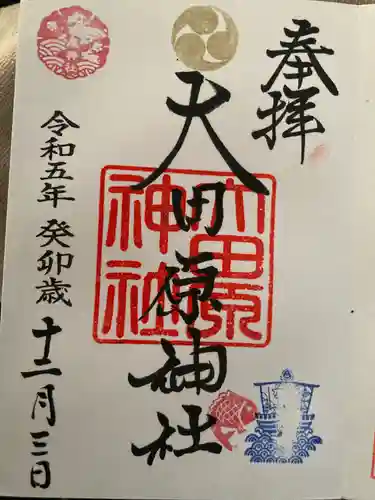 奉拝
大田原神社
大田原
神社
令和五年 癸卯歳 十二月三日